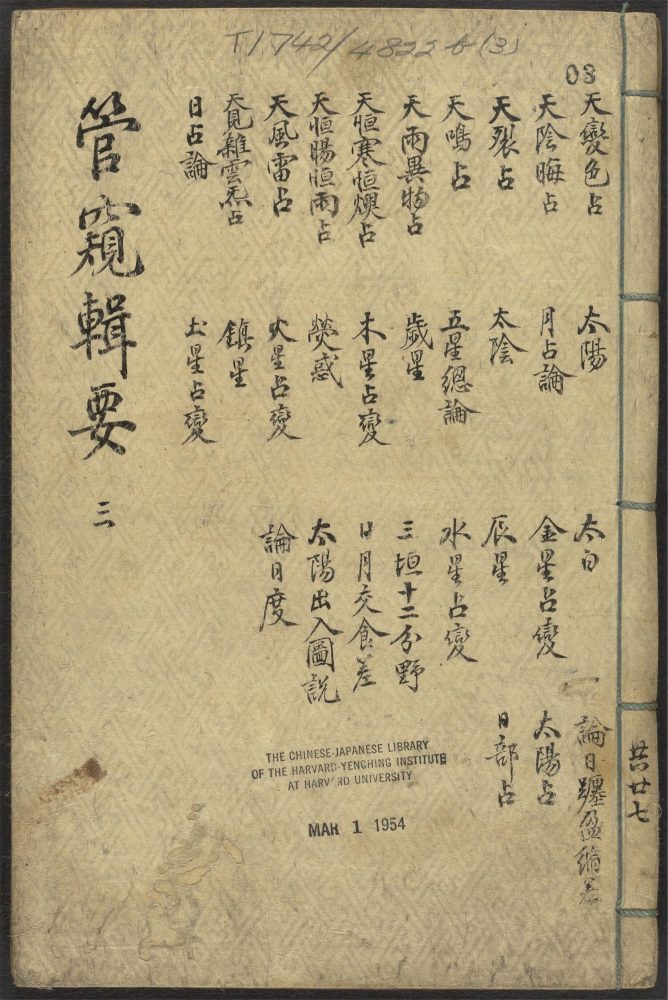 T1742/4822 b(3)
03
天變色占
天陰晦占
天裂占
天鳴占
天雨異物占
天恒寒恒燠占
天恒暘恒雨占
天風雷占
天見雜雲氣占
日占論
太陽
月占論
太陰
五星總論
歲星
木星占變
熒惑
火星占變
鎮星
土星占變
太白
金星占變
辰星
水星占變
三垣十二分野
日月交食差
太陽出入圖説
論日度
論日躔盈縮差
太陽占
日部占
管窺輯要 三
共廿七
THE CHINESE-JAPANESE LIBRARY
OF THE HARVARD-YENCHING INSTITUTE
AT HARVARD UNIVERSITY
MAR 1 1954